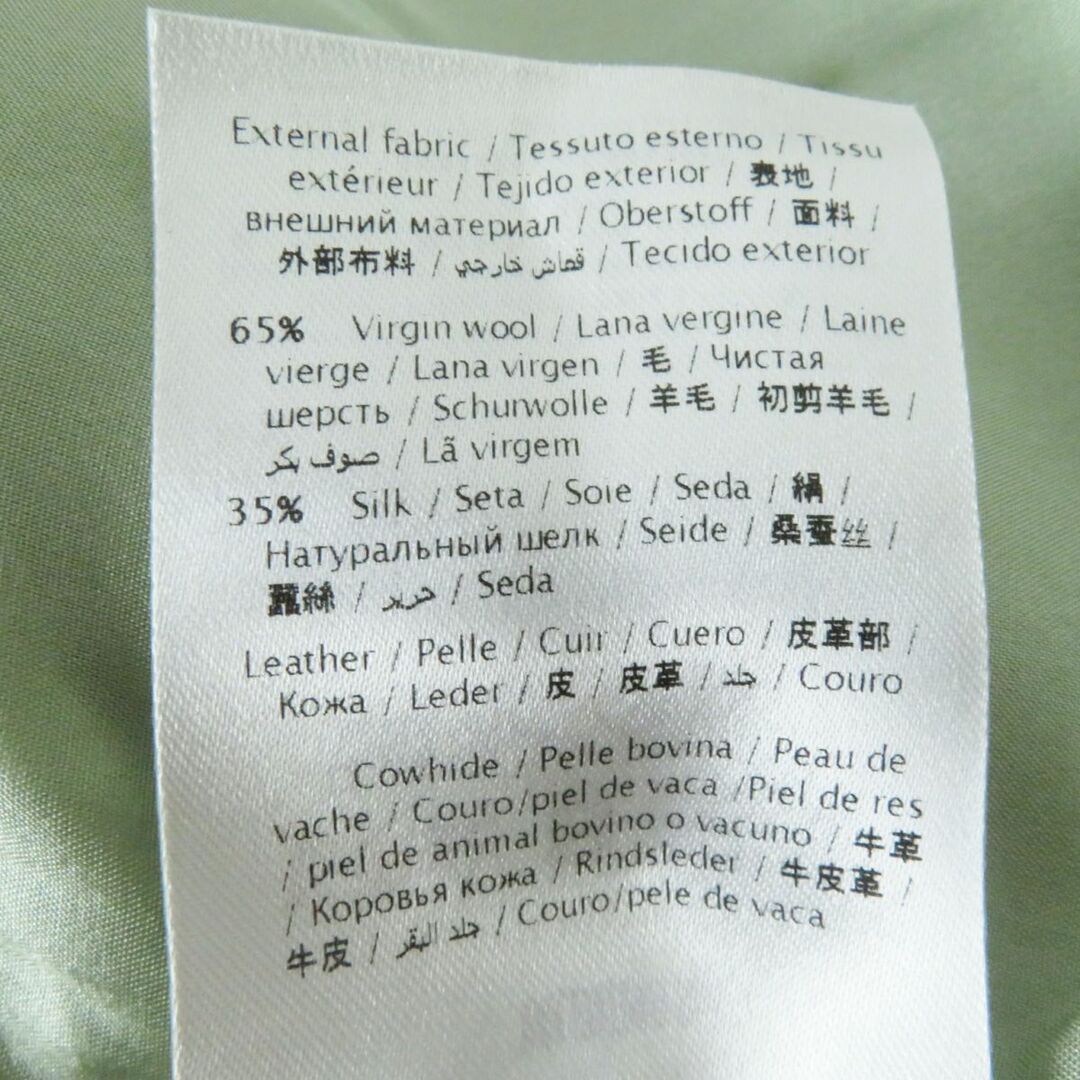 External fabric / Tessuto esterno / Tissu
extérieur / Tejido exterior / 表地 /
внешний материал / Oberstoff / 面料 /
外部布料 / قماش خارجي / Tecido exterior
65% Virgin wool / Lana vergine / Laine
vierge / Lana virgen / 毛 / Чистая
шерсть / Schurwolle / 羊毛 / 初剪羊毛 /
صوف بكر / Lã virgem
35% Silk / Seta / Soie / Seda / 絹 /
Натуральный шелк / Seide / 桑蚕丝 /
蠶絲 / حرير / Seda
Leather / Pelle / Cuir / Cuero / 皮革部 /
Кожа / Leder / 皮 / 皮革 / جلد / Couro
Cowhide / Pelle bovina / Peau de
vache / Couro/piel de vaca /Piel de res
/ piel de animal bovino o vacuno / 牛革
/ Коровья кожа / Rindsleder / 牛皮革 /
牛皮 / جلد البقر / Couro/pele de vaca